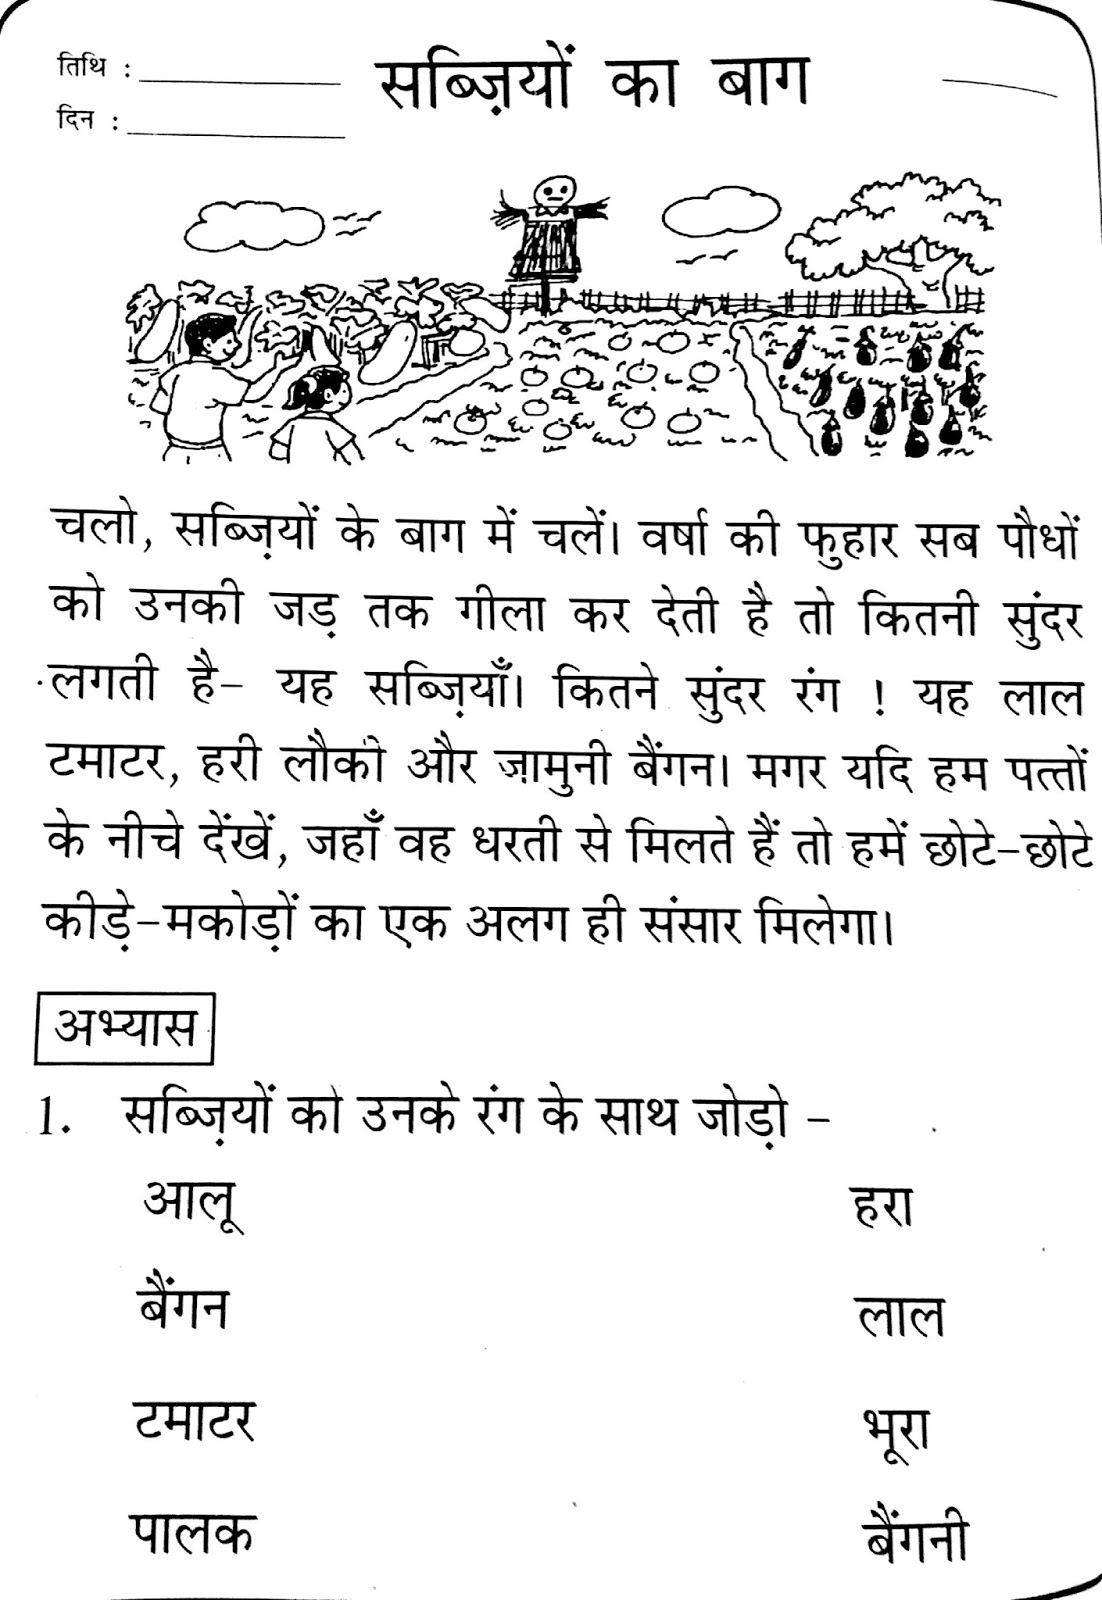 तिथि :
सब्ज़ियों का बाग
दिन :
चलो, सब्ज़ियों के बाग में चलें। वर्षा की फुहार सब पौधों
को उनकी जड़ तक गीला कर देती है तो कितनी सुंदर
लगती है- यह सब्ज़ियाँ। कितने सुंदर रंग ! यह लाल
टमाटर, हरी लौकी और ज़ामुनी बैंगन। मगर यदि हम पत्तों
के नीचे देंखें, जहाँ वह धरती से मिलते हैं तो हमें छोटे-छोटे
कीड़े-मकोड़ों का एक अलग ही संसार मिलेगा।
अभ्यास
1. सब्ज़ियों को उनके रंग के साथ जोड़ो -
आलू हरा
बैंगन लाल
टमाटर भूरा
पालक बैंगनी